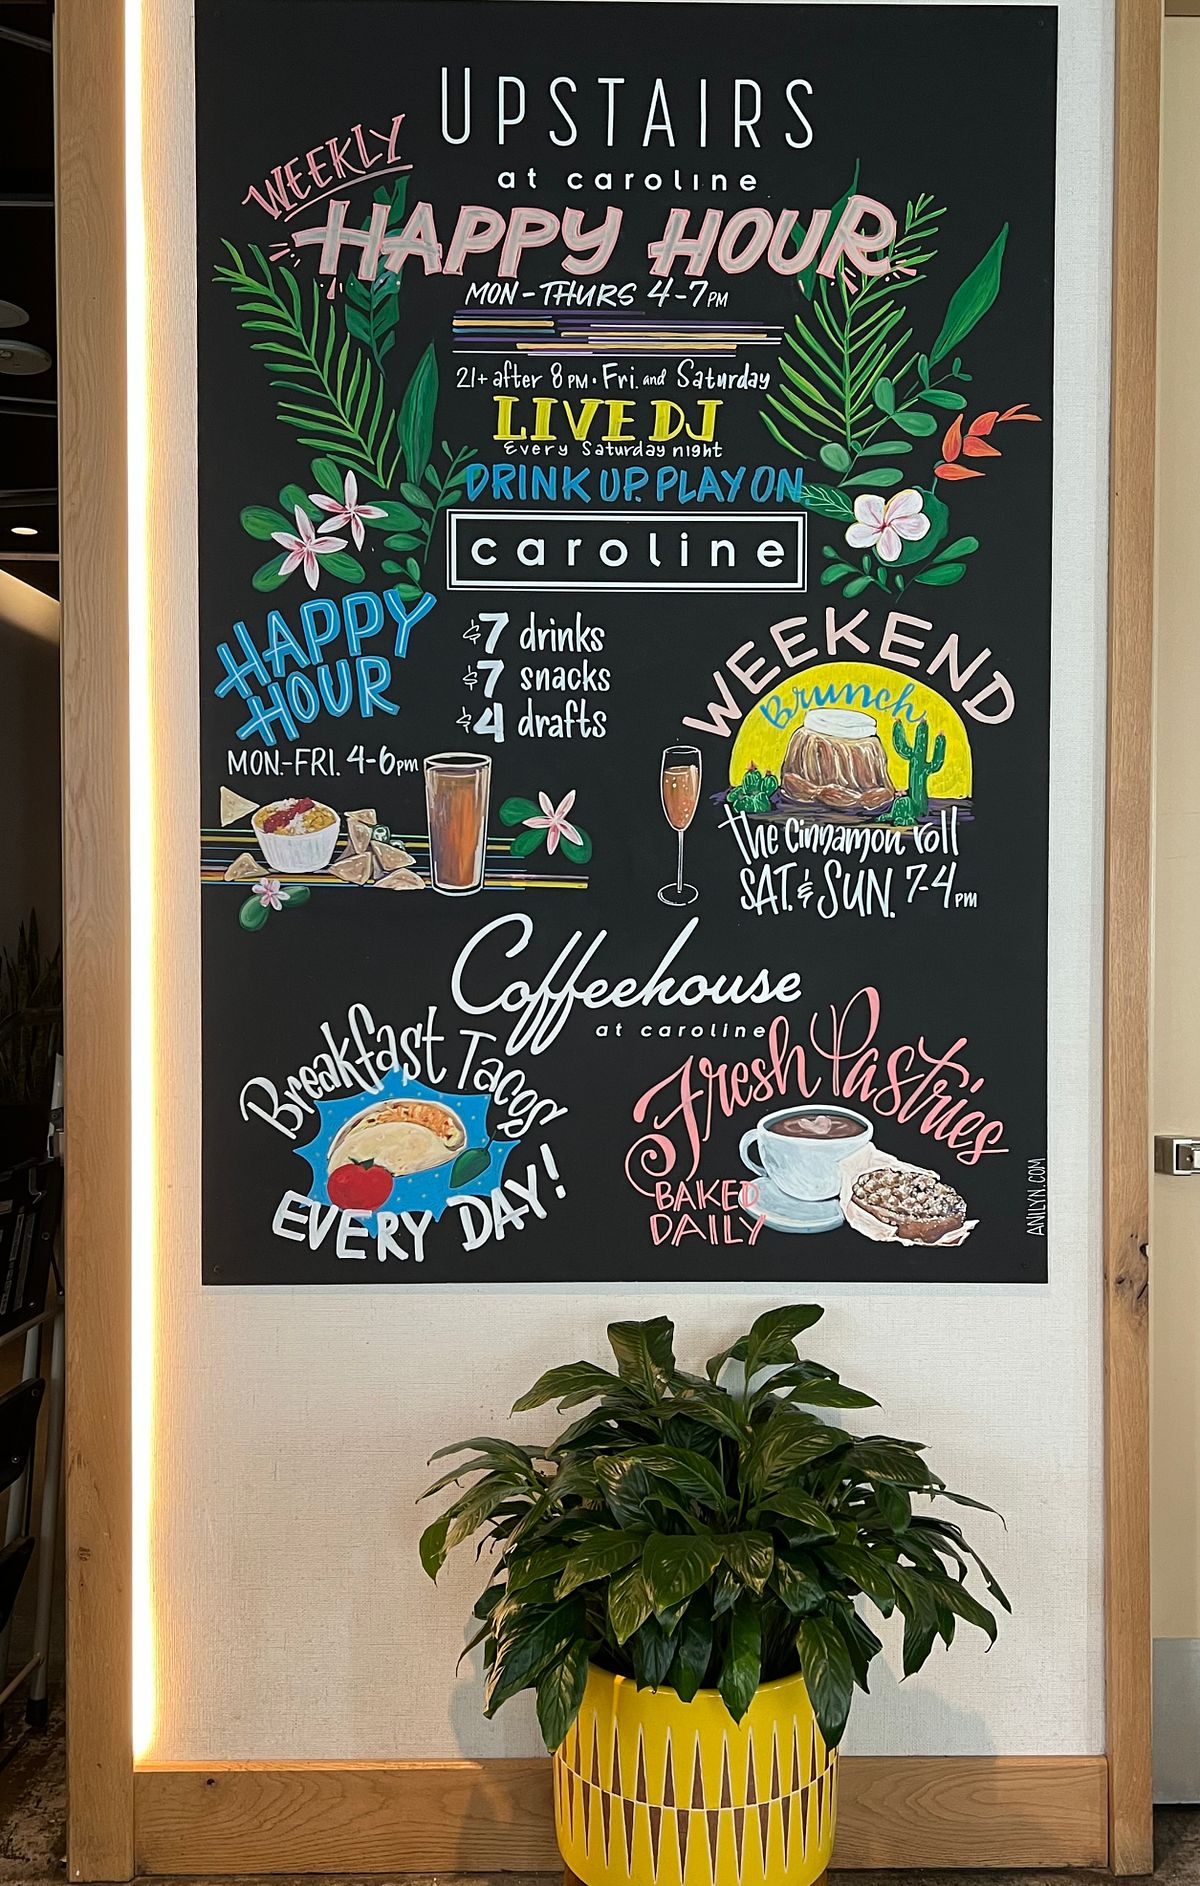 UPSTAIRS
at caroline
WEEKLY
HAPPY HOUR
MON-THURS 4-7PM
21+ after 8PM • Fri. and Saturday
LIVE DJ
Every Saturday night
DRINK UP. PLAY ON
caroline
HAPPY
HOUR
MON.-FRI. 4-6pm
$7 drinks
$7 snacks
$4 drafts
WEEKEND
Brunch
the Cinnamon roll
SAT. & SUN. 7-4pm
Coffeehouse
at caroline
Breakfast Tacos
EVERY DAY!
Fresh Pastries
BAKED
DAILY
ANILYN.COM